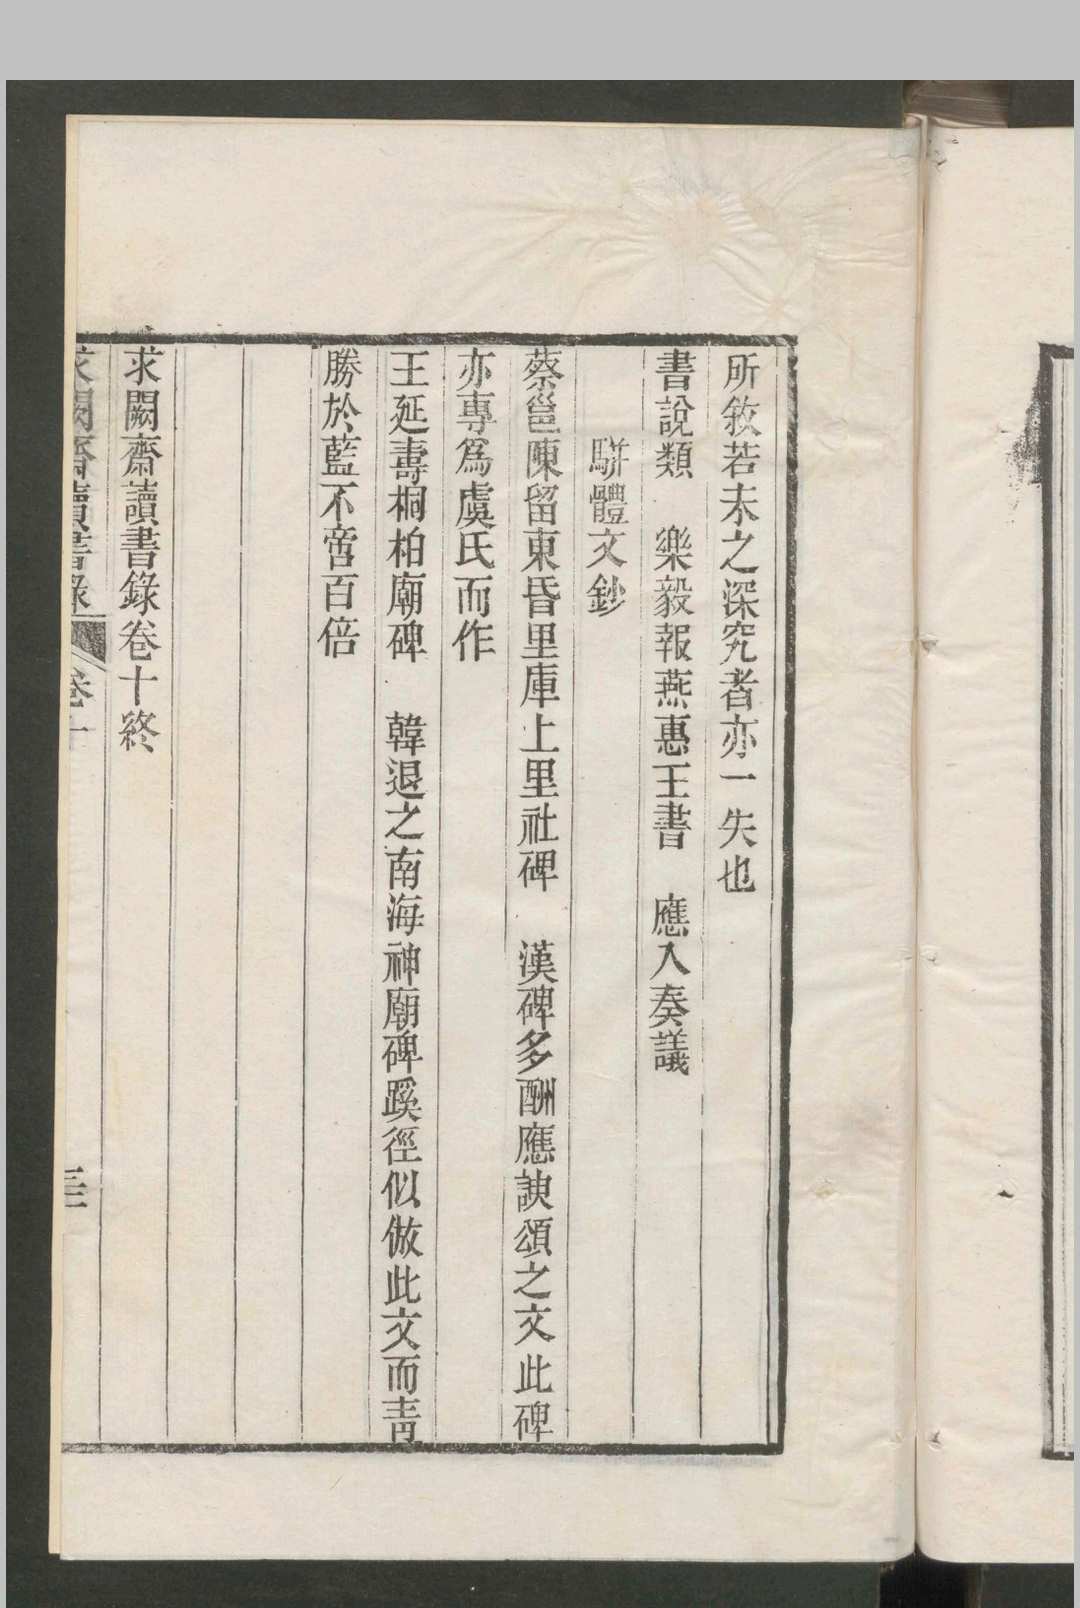 所敘若未之深究者亦一失也
書說類　樂毅報燕惠王書　應入奏議
駢體文鈔
蔡邕陳留東昏里庫上里社碑　漢碑多酬應諛頌之文此碑
亦專爲虞氏而作
王延壽桐柏廟碑　韓退之南海神廟碑蹊徑似倣此文而靑
勝於藍不啻百倍
求闕齋讀書錄卷十終
求闕齋讀書錄　卷十　三十二